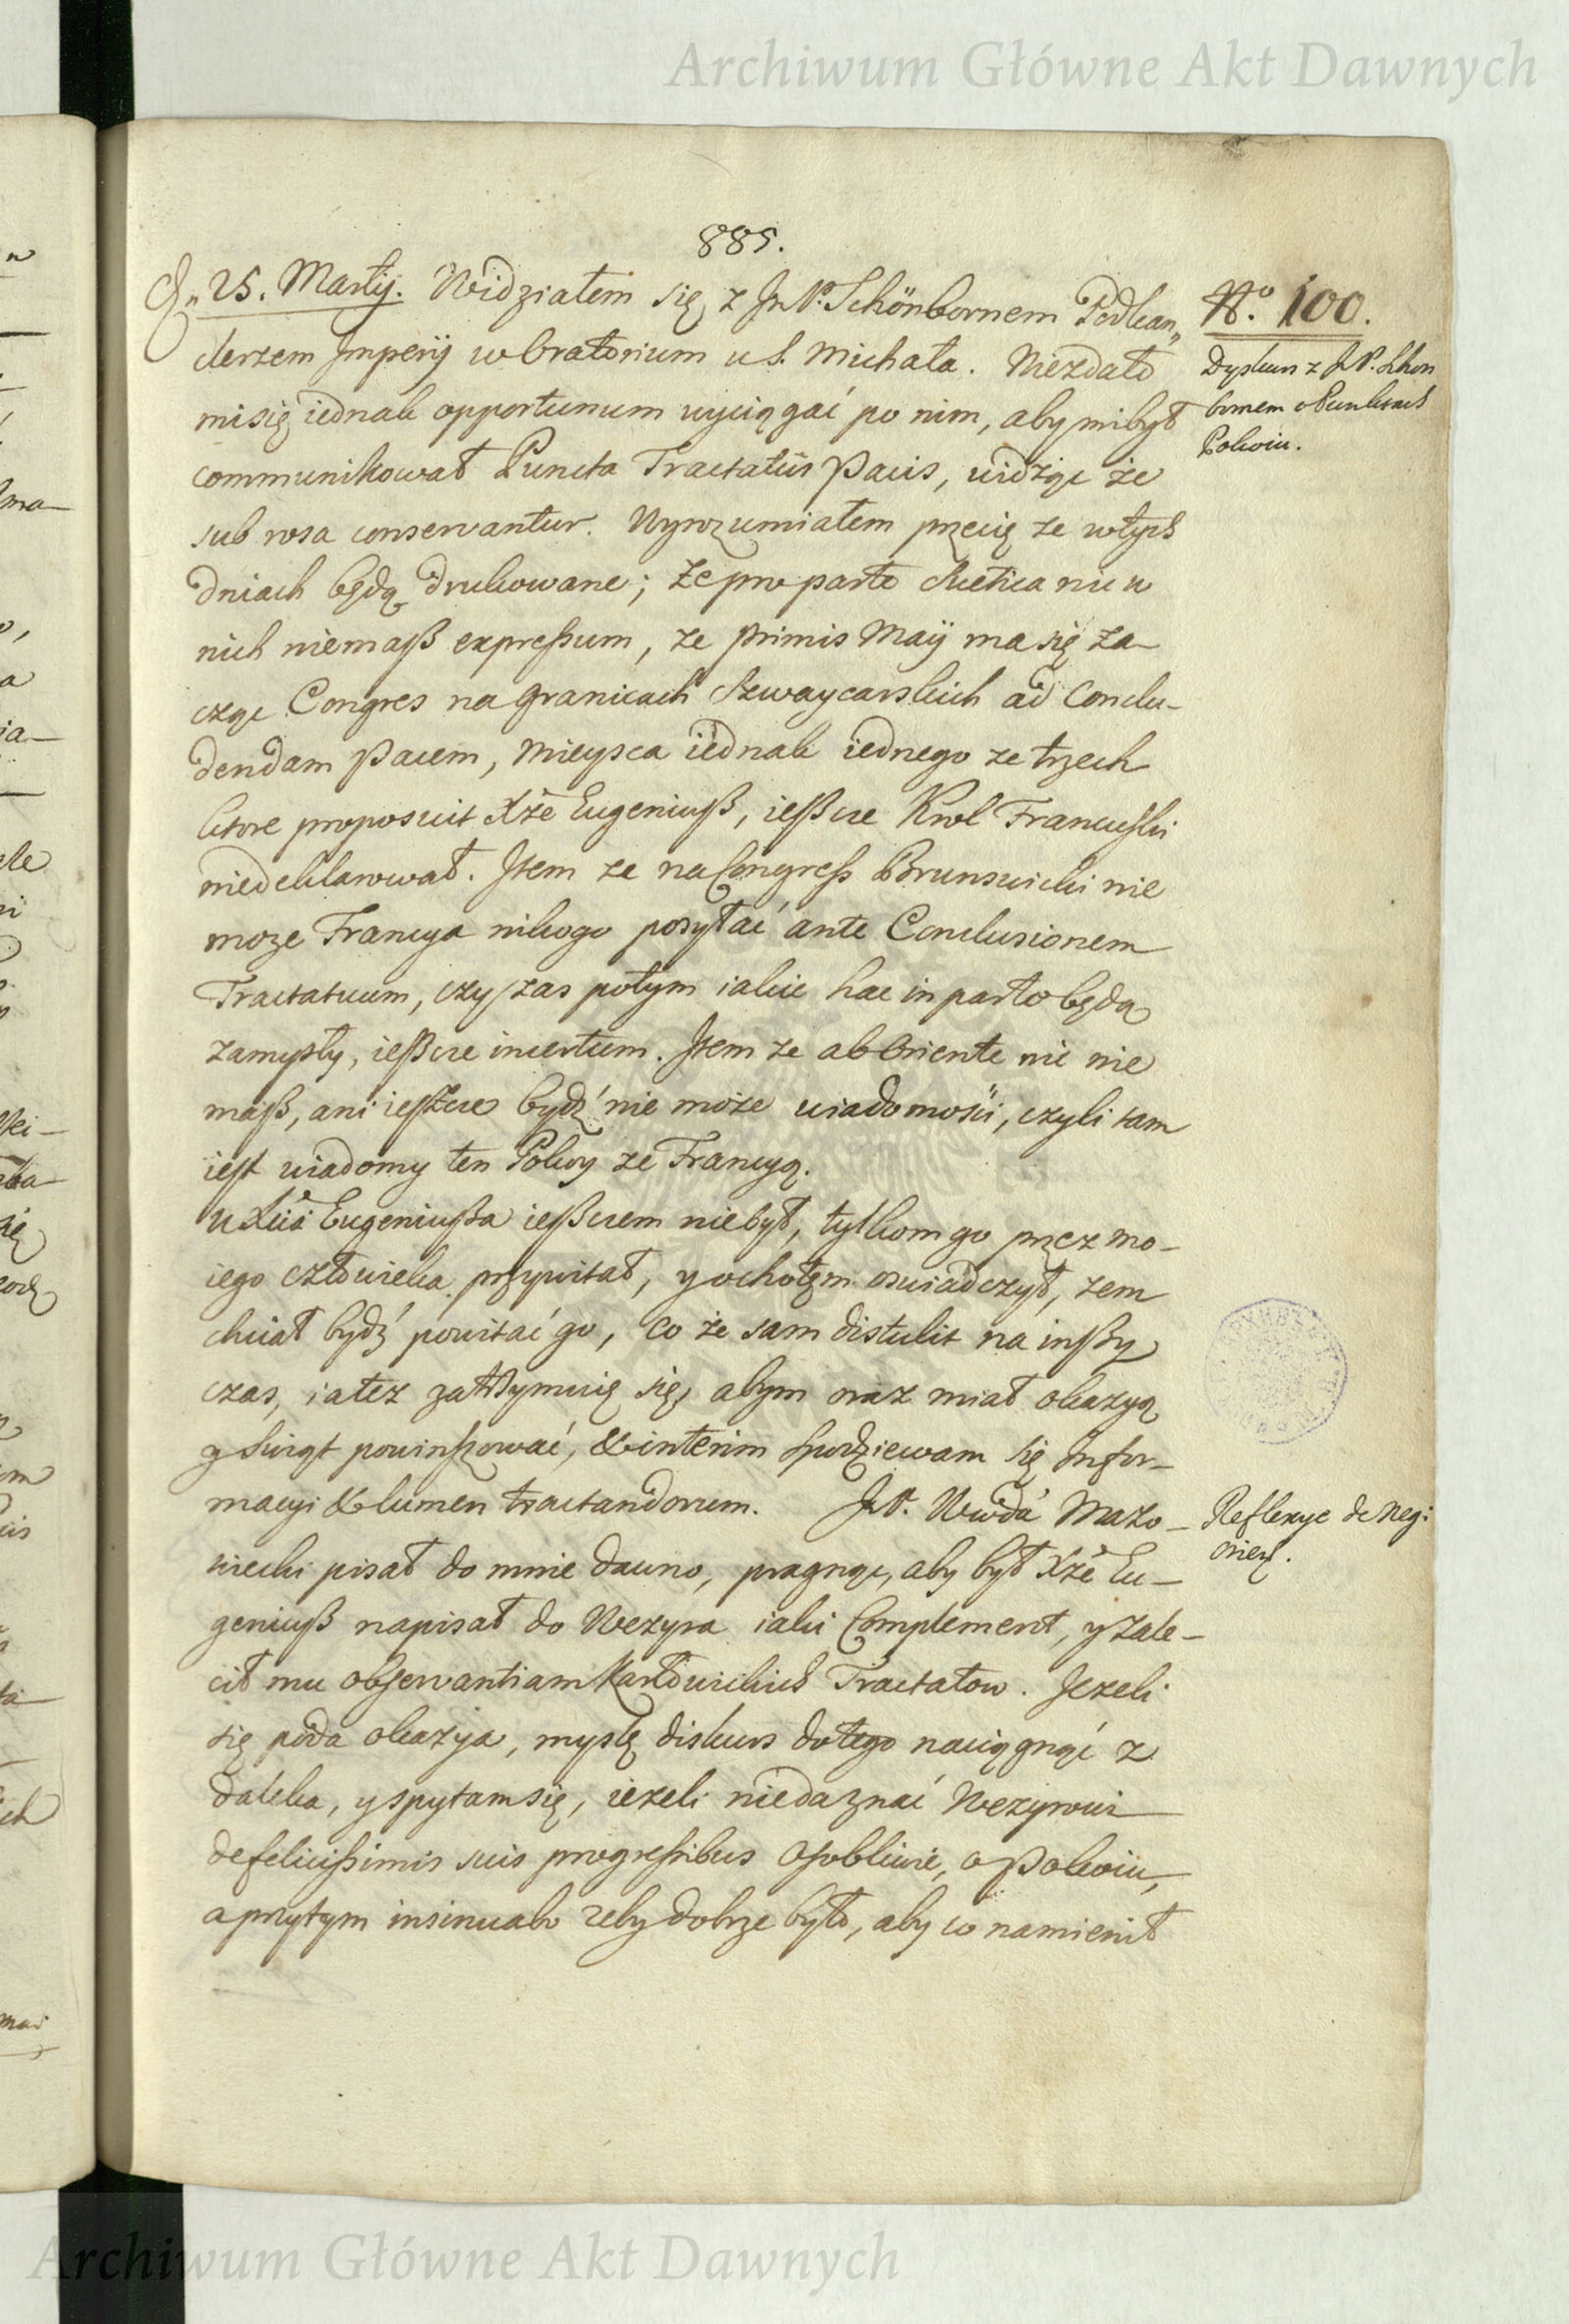 Archiwum Główne Akt Dawnych
885.
D. 25. Martij. Widziałem się z JmP. Schönbornem Podkan„
clerzem Imperij w Oratorium u S. Michała. Niezdało
mi się iednak opportunum wyciągać po nim, aby mi był
communikował Puncta Tractatûs Pacis, widząc że
sub rosa conservantur. Wyrozumiałem przecię ze w tych
dniach będą drukowane; Ze pro parte Suetica nic w
nich niemasz expressum, ze primis Maij ma się za-
cząc Congres na granicach Szwaycarskich ad Conclu-
dendam Pacem, Mieysca iednak iednego ze trzech
ktore proposuit Xże Eugeniusz, ieszcze Krol Francuski
niedeklarował. Item ze na Congress Brunswicki nie
moze Francya nikogo posyłać ante Conclusionem
Tractatuum, czy zas potym iakie hac in parte będą
zamysły, ieszcze incertum. Item ze ab Oriente nic nie
masz, ani ieszcze bydź nie może wiadomości, czyli tam
iest wiadomy ten Pokoy ze Francyą.
U Xcia Eugeniusza ieszczem niebył, tylkom go przez mo-
iego człowieka przywitał, y ochotęm oswiadczył, zem
chciał bydź powitać go, co że sam distulit na inszy
czas, ia tez zatrzymuię się, abym oraz miał okazyą
y Swiąt powinszować, & interim spodziewam się Infor-
macyi & lumen tractandorum. JmP. Wwda Mazo-
wiecki pisał do mnie dawno, pragnąc, aby był Xże Eu-
geniusz napisał do Wezyra iaki Complement, y zale-
cił mu observantiam Karłowickich Tractatow. Jezeli
się poda okazyja, myslę diskurs do tego naciągnąć z
daleka, y spytam się, iezeli nieda znać Wezyrowi
de felicissimis suis progressibus osobliwie, o Pokoiu,
a przytym insinuabo zeby dobrze było, aby co namienił
No. 100.
Dyskurs z JP. Schon
bornem o Punktach
Pokoiu.
Reflexye de Neg:
Orient.
Archiwum Główne Akt Dawnych